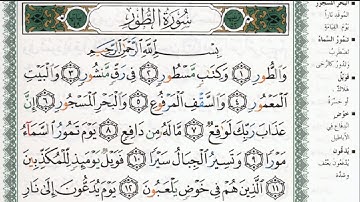 سُورَةُ الطُّورِ
بِسْمِ اللَّهِ الرَّحْمَٰنِ الرَّحِيمِ
وَالطُّورِ ١ وَكِتَابٍ مَّسْطُورٍ ٢ فِي رَقٍّ مَّنشُورٍ ٣ وَالْبَيْتِ
الْمَعْمُورِ ٤ وَالسَّقْفِ الْمَرْفُوعِ ٥ وَالْبَحْرِ الْمَسْجُورِ ٦ إِنَّ
عَذَابَ رَبِّكَ لَوَاقِعٌ ٧ مَّا لَهُ مِن دَافِعٍ ٨ يَوْمَ تَمُورُ السَّمَاءُ
مَوْرًا ٩ وَتَسِيرُ الْجِبَالُ سَيْرًا ١٠ فَوَيْلٌ يَوْمَئِذٍ لِّلْمُكَذِّبِينَ
١١ الَّذِينَ هُمْ فِي خَوْضٍ يَلْعَبُونَ ١٢ يَوْمَ يُدَعُّونَ إِلَىٰ نَارِ
البحر المسجور
الموقد نارا
يوم القيامة
تمور السماء
تضطرب
وتدور كالرحى
فويل
هلاك
خوض
اندفاع في
الأباطيل
يدعون
يدفعون بعنف